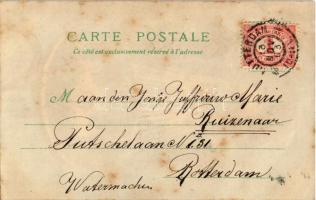 CARTE POSTALE
Ce côté est exclusivement réservé à l'adresse
M aan den Jonge Juffrouw Marie
Ruizenaar
Putschelaan No 131
Rotterdam
Watermachen